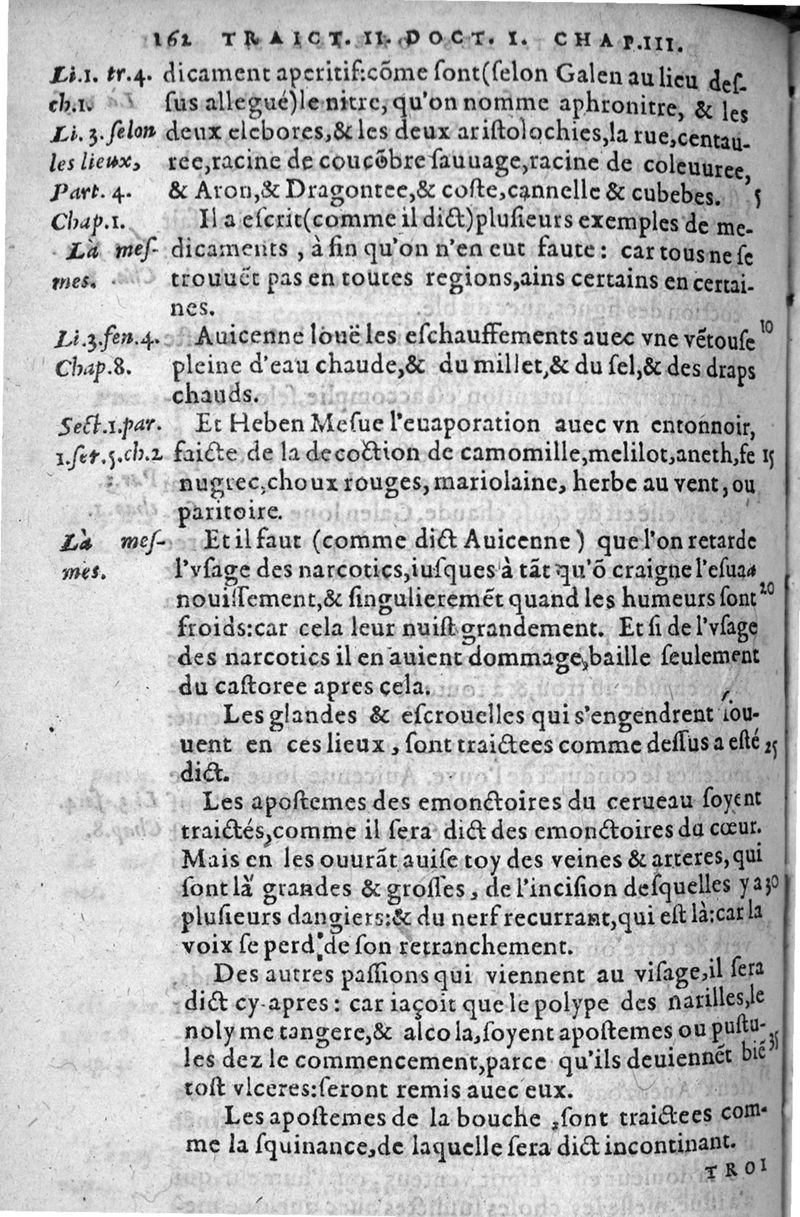 162 TRAICT. II. DOCT. I. CHAP. III.
Li.1. tr.4. dicament aperitif:cõme ſont(ſelon Galen au lieu deſ-
ch.1. ſus allegué)le nitre, qu'on nomme aphronitre, & les
Li. 3. ſelon deux elebores,& les deux ariſtolochies,la rue,centau-
les lieux, ree,racine de coucõbre ſauuage,racine de coleuuree,
Part. 4. & Aron,& Dragontee,& coſte,cannelle & cubebes. 5
Chap.1. Il a eſcrit(comme il dict)pluſieurs exemples de me-
Là meſ- dicaments , à fin qu'on n'en eut faute : car tous ne ſe
mes. trouuẽt pas en toutes regions,ains certains en certai-
nes.
Li.3.fen.4. Auicenne louë les eſchauffements auec vne vẽtouſe 10
Chap.8. pleine d'eau chaude,& du millet,& du ſel,& des draps
chauds.
Sect.1.par. Et Heben Meſue l'euaporation auec vn entonnoir,
1.ſer.5.ch.2 faicte de la decoction de camomille,melilot,aneth,fe 15
nugrec,choux rouges, mariolaine, herbe au vent, ou
paritoire.
Là meſ- Et il faut (comme dict Auicenne ) que l'on retarde
mes. l'vſage des narcotics,iuſques à tãt qu'õ craigne l'eſua
nouiſſement,& ſingulieremẽt quand les humeurs ſont 20
froids:car cela leur nuiſt grandement. Et ſi de l'vſage
des narcotics il en auient dommage,baille ſeulement
du caſtoree apres cela.
Les glandes & eſcrouelles qui s'engendrent ſou-
uent en ces lieux , ſont traictees comme deſſus a eſté 25
dict.
Les apoſtemes des emonctoires du cerueau ſoyent
traictés,comme il ſera dict des emonctoires du cœur.
Mais en les ouurãt auiſe toy des veines & arteres, qui
ſont là grandes & groſſes , de l'inciſion deſquelles y a 30
pluſieurs dangiers:& du nerf recurrant,qui eſt là:car la
voix ſe perd de ſon retranchement.
Des autres paſſions qui viennent au viſage,il ſera
dict cy-apres : car iaçoit que le polype des narilles,le
noly me tangere,& alcola,ſoyent apoſtemes ou puſtu- 35
les dez le commencement,parce qu'ils deuiennẽt biẽ
toſt vlceres:ſeront remis auec eux.
Les apoſtemes de la bouche , ſont traictees com-
me la ſquinance,de laquelle ſera dict incontinant.
TROI